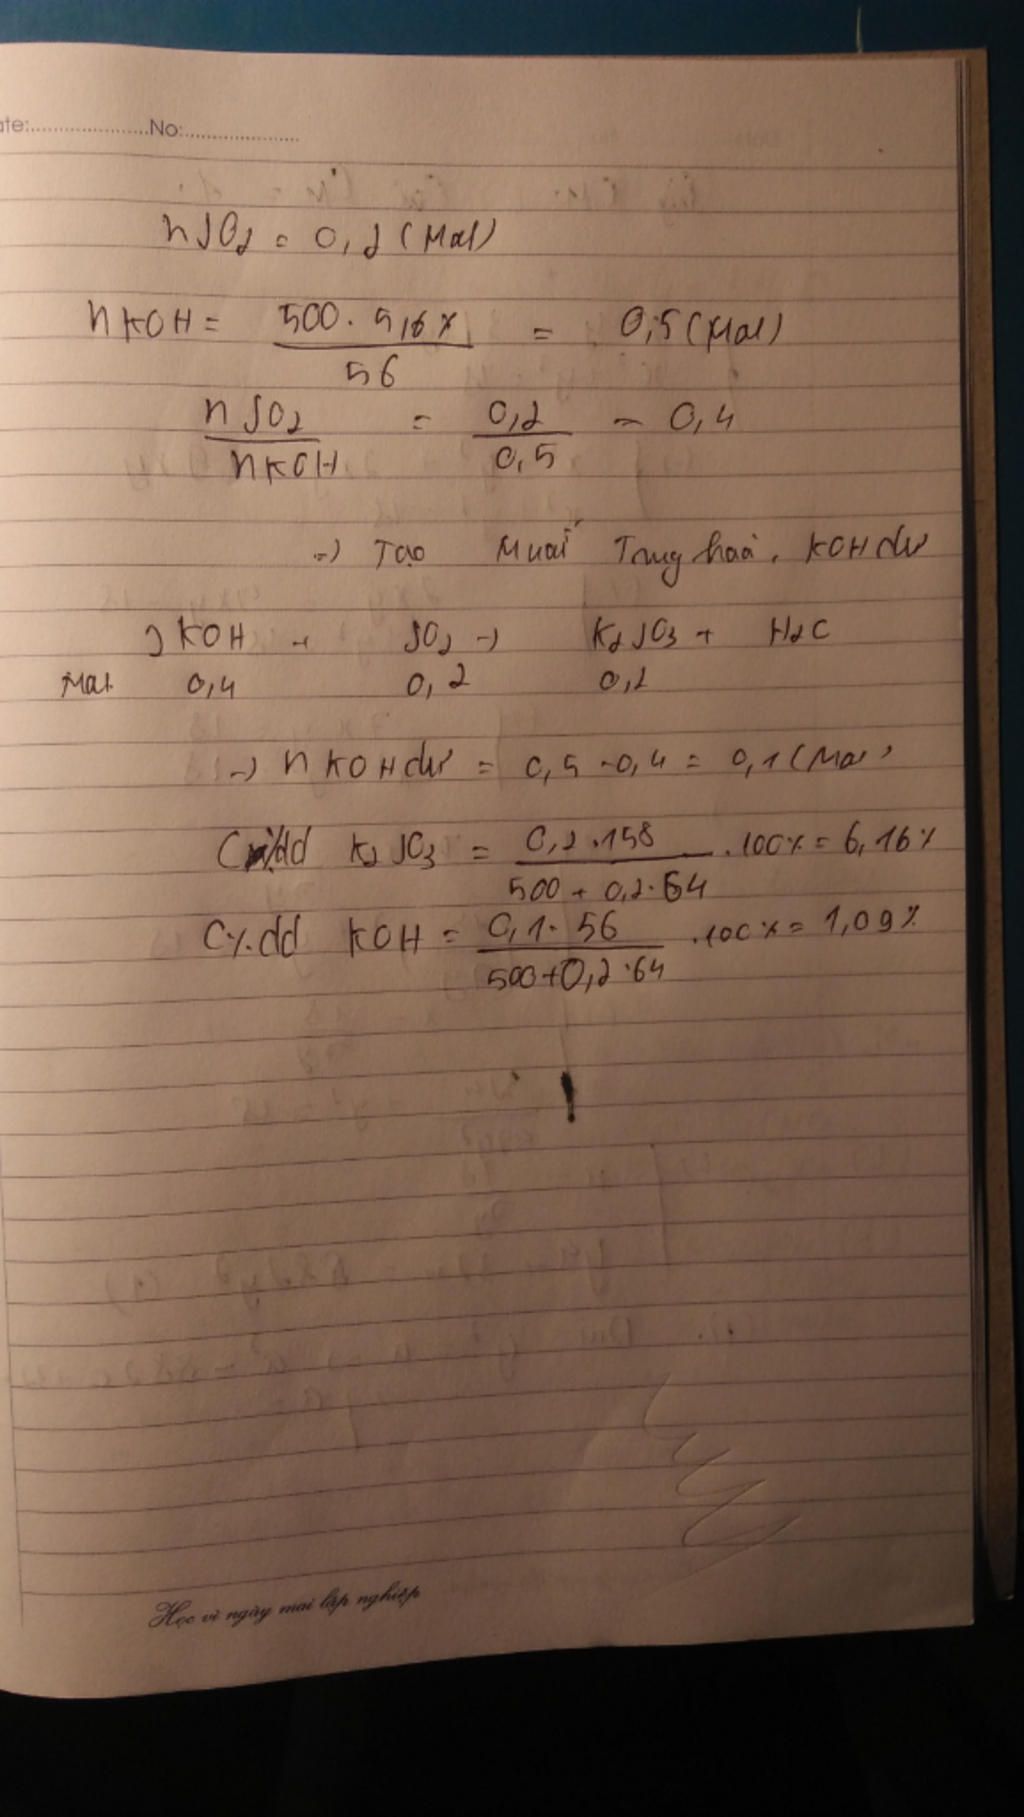 ate:....................No:....................
nSO2 = 0,2 (Mol)
nKOH = 500. 5,6% / 56 = 0,5 (Mol)
nSO2 / nKOH = 0,2 / 0,5 = 0,4
=) Tạo Muối Trung hoà, KOH dư
2KOH + SO2 -> K2SO3 + H2O
Mol 0,4 0,2 0,2
-> nKOH dư = 0,5 - 0,4 = 0,1 (Mol)
C%dd K2SO3 = 0,2.158 / 500 + 0,2.64 .100% = 6,16%
C%dd KOH = 0,1.56 / 500+0,2.64 .100% = 1,09%
Học vì ngày mai lập nghiệp